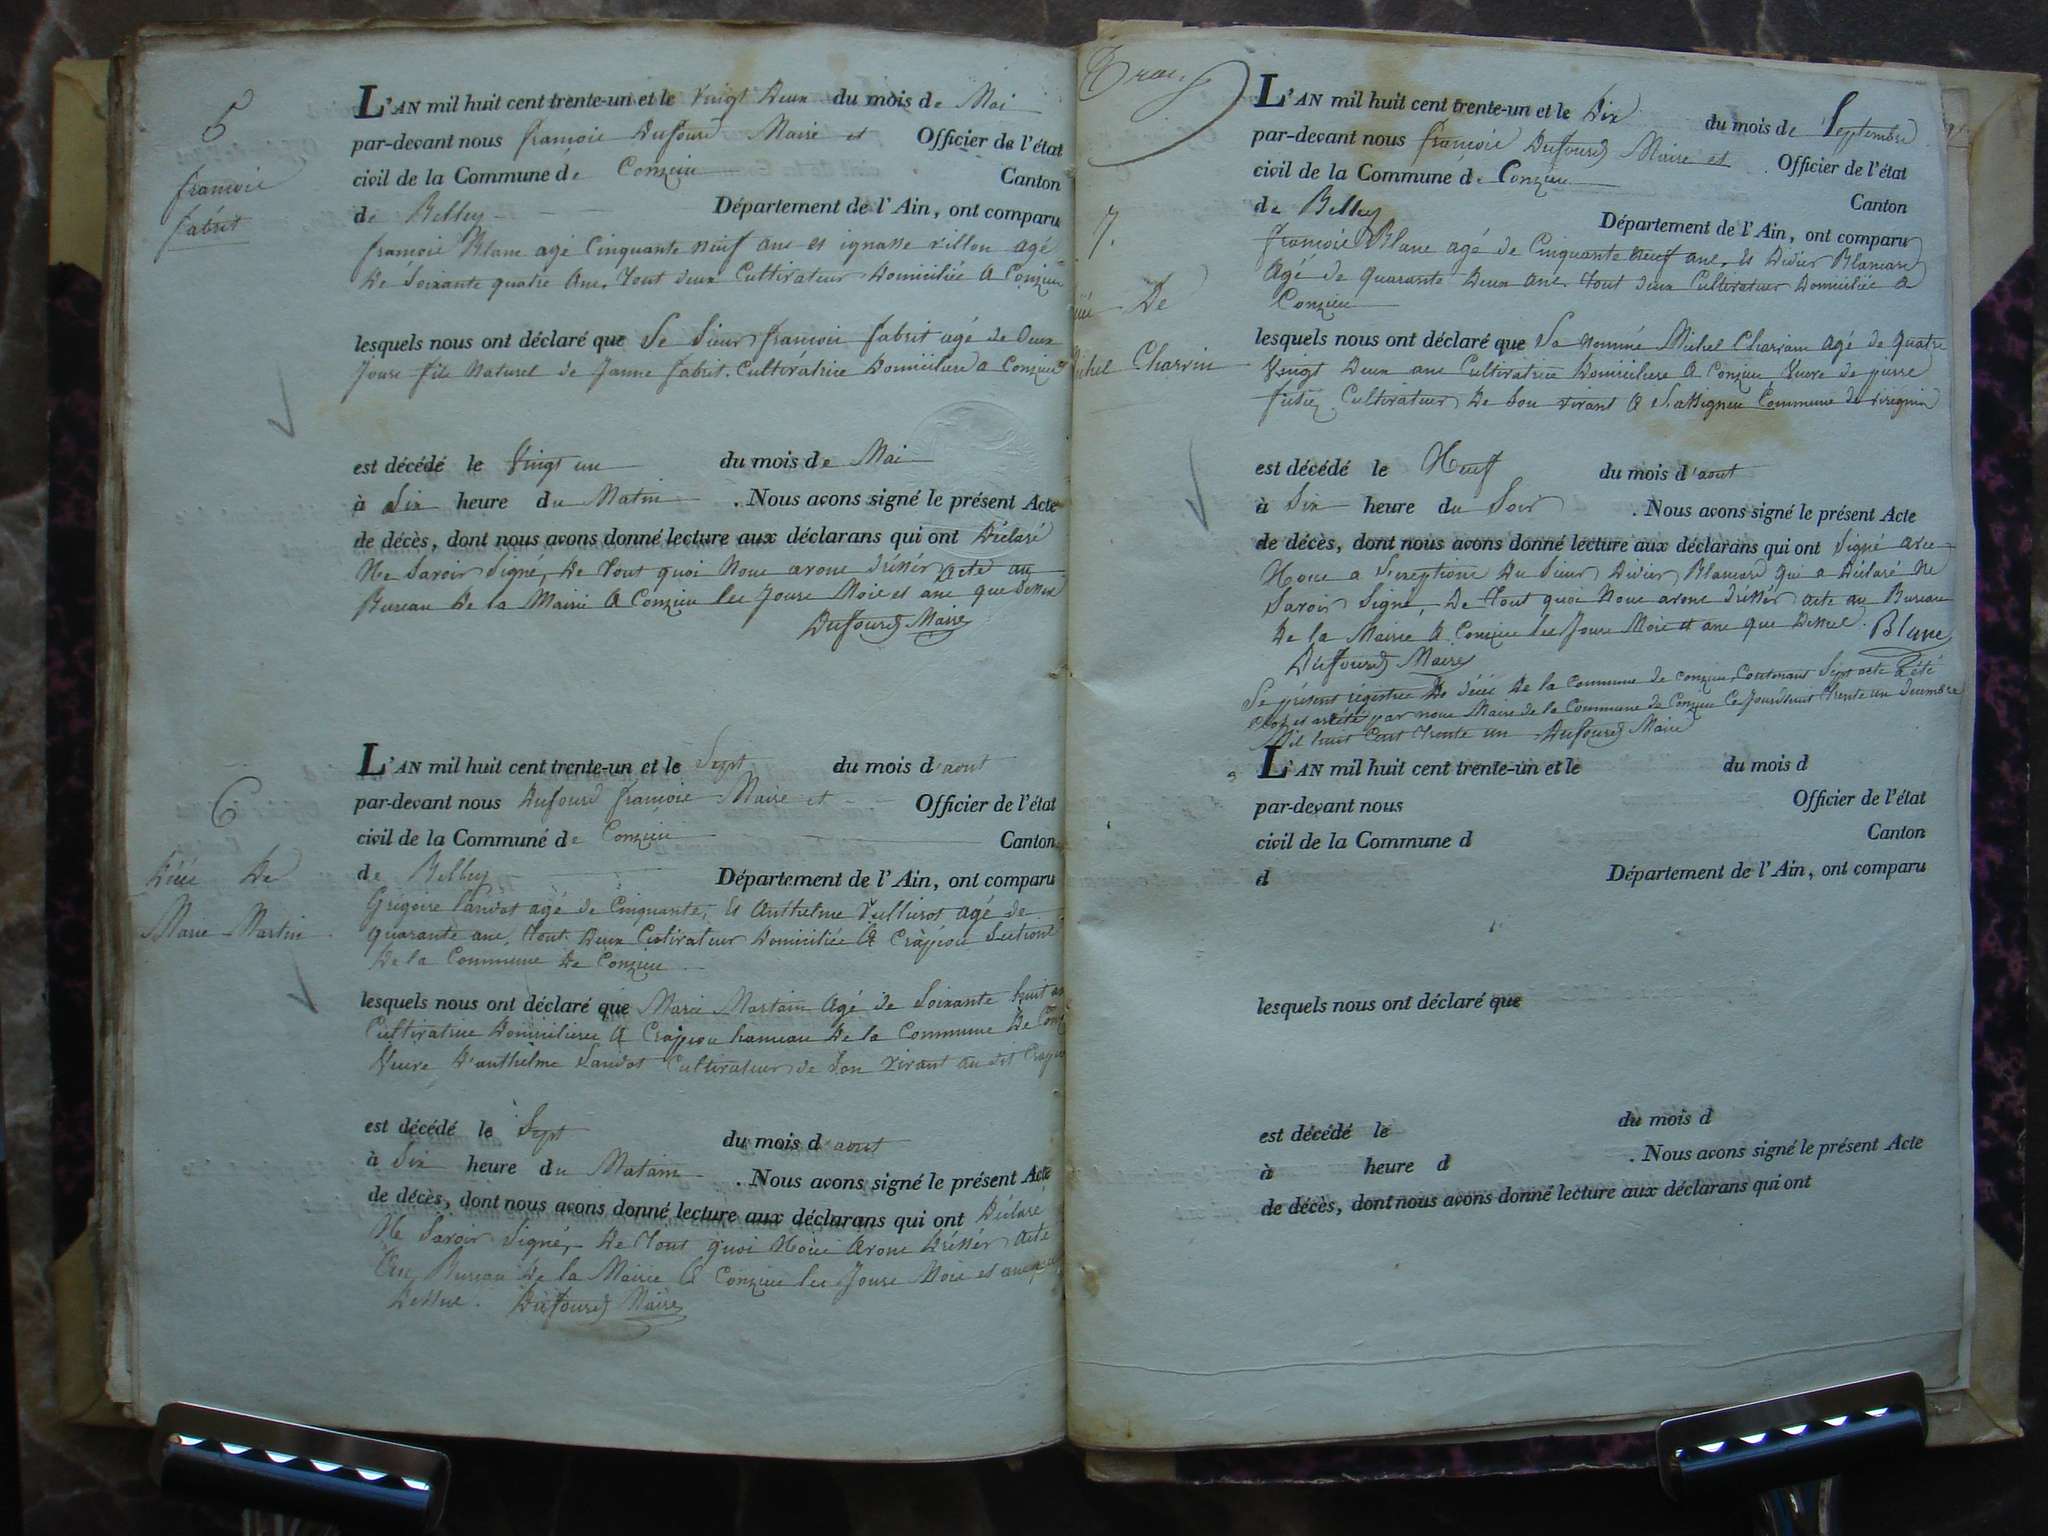 5
francois
fabrit
L'AN mil huit cent trente-un et le vingt Deux du mois de Mai
par-devant nous francois Dufourd Maire et Officier de l'état
civil de la Commune de Conzieu Canton
de Belley Département de l'Ain, ont comparu
francois Blanc agé Cinquante neuf ans et ignasse villon agé
De Soixante quatre Ans, tout deux Cultivateur Domiciliée a Conzieu
lesquels nous ont déclaré que Le Sieur francois fabrit agé de Deux
Jours fils Naturel de Janne fabrit. Cultivatrice Domiciliere a Conzieu
est décédé le Vingt un du mois de Mai
à Six heure du Matin . Nous avons signé le présent Acte
de décès, dont nous avons donné lecture aux déclarans qui ont Déclaré
Ne Savoir Signé, De tout quoi Nous avons dréssér acte au
Bureau De la Mairie a Conzieu les Jours Mois et ans que Dessus
Dufourd Maire
6
Déces De
Marie Martin
L'AN mil huit cent trente-un et le Sept du mois d'aout
par-devant nous Dufourd francois Maire et Officier de l'état
civil de la Commune de Conzieu Canton
de Belley Département de l'Ain, ont comparu
Grégoire Landot agé de Cinquante, Et Anthelme Vullierot agé de
quarante ans, tout Deux Cutivateur Domiciliée A Crapiou Sectiont
De la Commune De Conzieu
lesquels nous ont déclaré que Marie Martain Agé de Soixante huit an
Cultivatrice Domiciliere A Crapiou hameau De la Commune De
Veuve D'anthelme Landot Cultivateur de Son vivant au dit
est décédé le Sept du mois d'aout
à Six heure du Matain . Nous avons signé le présent Acte
de décès, dont nous avons donné lecture aux déclarans qui ont Déclaré
Ne Savoir Signé, De tout quoi Nous Avons Dréssér acte
Au Bureau De la Mairie A Conzieu les Jours Mois et ans que
Dessus. Dufourd Maire
7.
De
Charvin
L'AN mil huit cent trente-un et le Dix du mois de Septembre
par-devant nous francois Dufourd Maire et Officier de l'état
civil de la Commune de Conzieu Canton
de Belley Département de l'Ain, ont comparu
francois Blanc agé de Cinquante neuf ans, Et Didier Blancard
Agé de quarante Deux ans tout deux Cultivateur Domiciliée a
Conzieu
lesquels nous ont déclaré que La nommé Michel Charvin Agé de quatre
Vingt Deux ans Cultivatrice Domiciliere A Conzieu Veuve de pierre
Cultivateur De Son vivant A Commune de
est décédé le Neuf du mois d'aout
à Six heure du Soir . Nous avons signé le présent Acte
de décès, dont nous avons donné lecture aux déclarans qui ont Signé avec
Nous a Du Sieur Didier Blancard qui a Déclaré Ne
Savoir Signé, De tout quoi Nous avons dréssér acte au Bureau
De la Mairie A Conzieu les Jours Mois et ans que Dessus. Blanc
Dufourd Maire
Le présent régistre De décès De la Commune de conzieu Contenant Sept acte a été
clos et arrété par nous Maire de la Commune de Conzieu Ce Jourd'huit trente un decembre
Mil huit Cent trente un Dufourd Maire
L'AN mil huit cent trente-un et le du mois d
par-devant nous Officier de l'état
civil de la Commune d Canton
d Département de l'Ain, ont comparu
lesquels nous ont déclaré que
est décédé le du mois d
à heure d . Nous avons signé le présent Acte
de décès, dont nous avons donné lecture aux déclarans qui ont